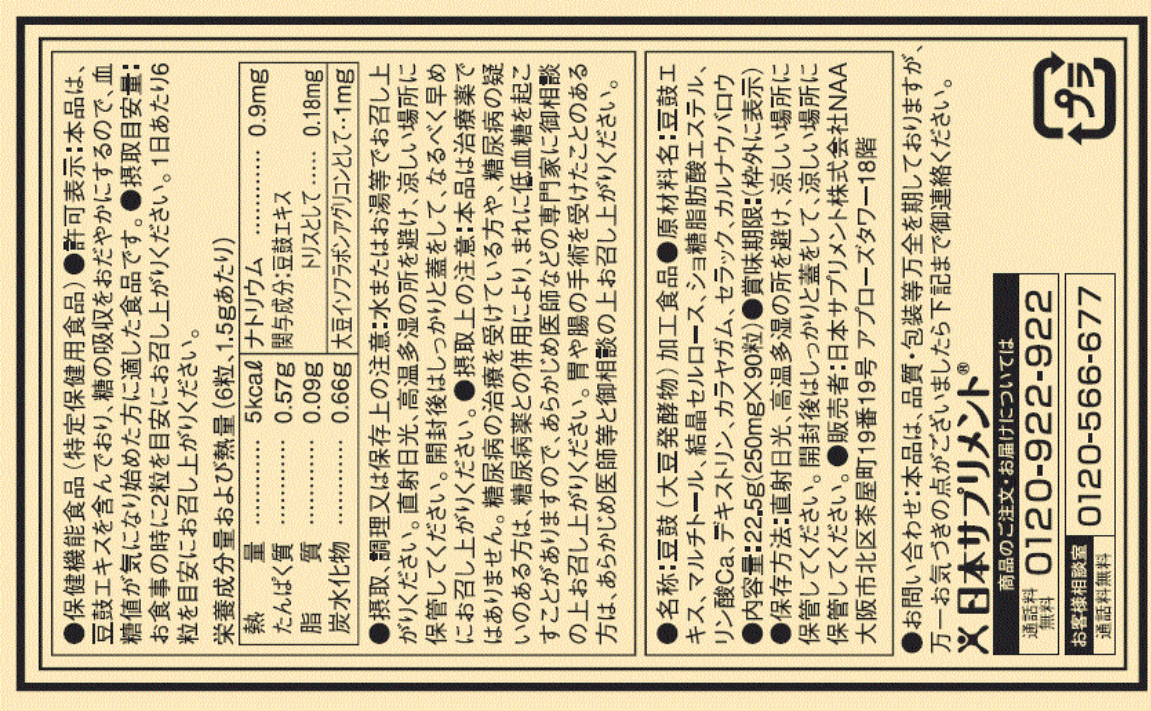 ●保健機能食品（特定保健用食品）●許可表示：本品は、
豆鼓エキスを含んでおり、糖の吸収をおだやかにするので、血
糖値が気になり始めた方に適した食品です。●摂取目安量：
お食事の時に2粒を目安にお召し上がりください。1日あたり6
粒を目安にお召し上がりください。
栄養成分量および熱量（6粒、1.5gあたり）
熱量…………5kcal
たんぱく質…………0.57g
脂質…………0.09g
炭水化物…………0.66g
ナトリウム…………0.9mg
関与成分：豆鼓エキス
トリスとして……0.18mg
大豆イソフラボンアグリコンとして‥1mg
●摂取、調理又は保存上の注意：水またはお湯等でお召し上
がりください。直射日光、高温多湿の所を避け、涼しい場所に
保管してください。開封後はしっかりと蓋をして、なるべく早め
にお召し上がりください。●摂取上の注意：本品は治療薬で
はありません。糖尿病の治療を受けている方や、糖尿病の疑
いのある方は、糖尿病薬との併用により、まれに低血糖を起こ
すことがありますので、あらかじめ医師などの専門家に御相談
の上お召し上がりください。胃や腸の手術を受けたことのある
方は、あらかじめ医師等と御相談の上お召し上がりください。
●名称：豆鼓（大豆発酵物）加工食品●原材料名：豆鼓エ
キス、マルチトール、結晶セルロース、ショ糖脂肪酸エステル、
リン酸Ca、デキストリン、カラヤガム、セラック、カルナウバロウ
●内容量：22.5g(250mg×90粒)●賞味期限：(枠外に表示)
●保存方法：直射日光、高温多湿の所を避け、涼しい場所に
保管してください。開封後はしっかりと蓋をして、涼しい場所に
保管してください。●販売者：日本サプリメント株式会社NAA
大阪市北区茶屋町19番19号 アプローズタワー18階
●お問い合わせ：本品は、品質・包装等万全を期しておりますが、
万一お気づきの点がございましたら下記まで御連絡ください。
日本サプリメント®
商品のご注文・お届けについては
通話料無料 0120-922-922
お客様相談室
通話料無料 0120-566-677
プラ